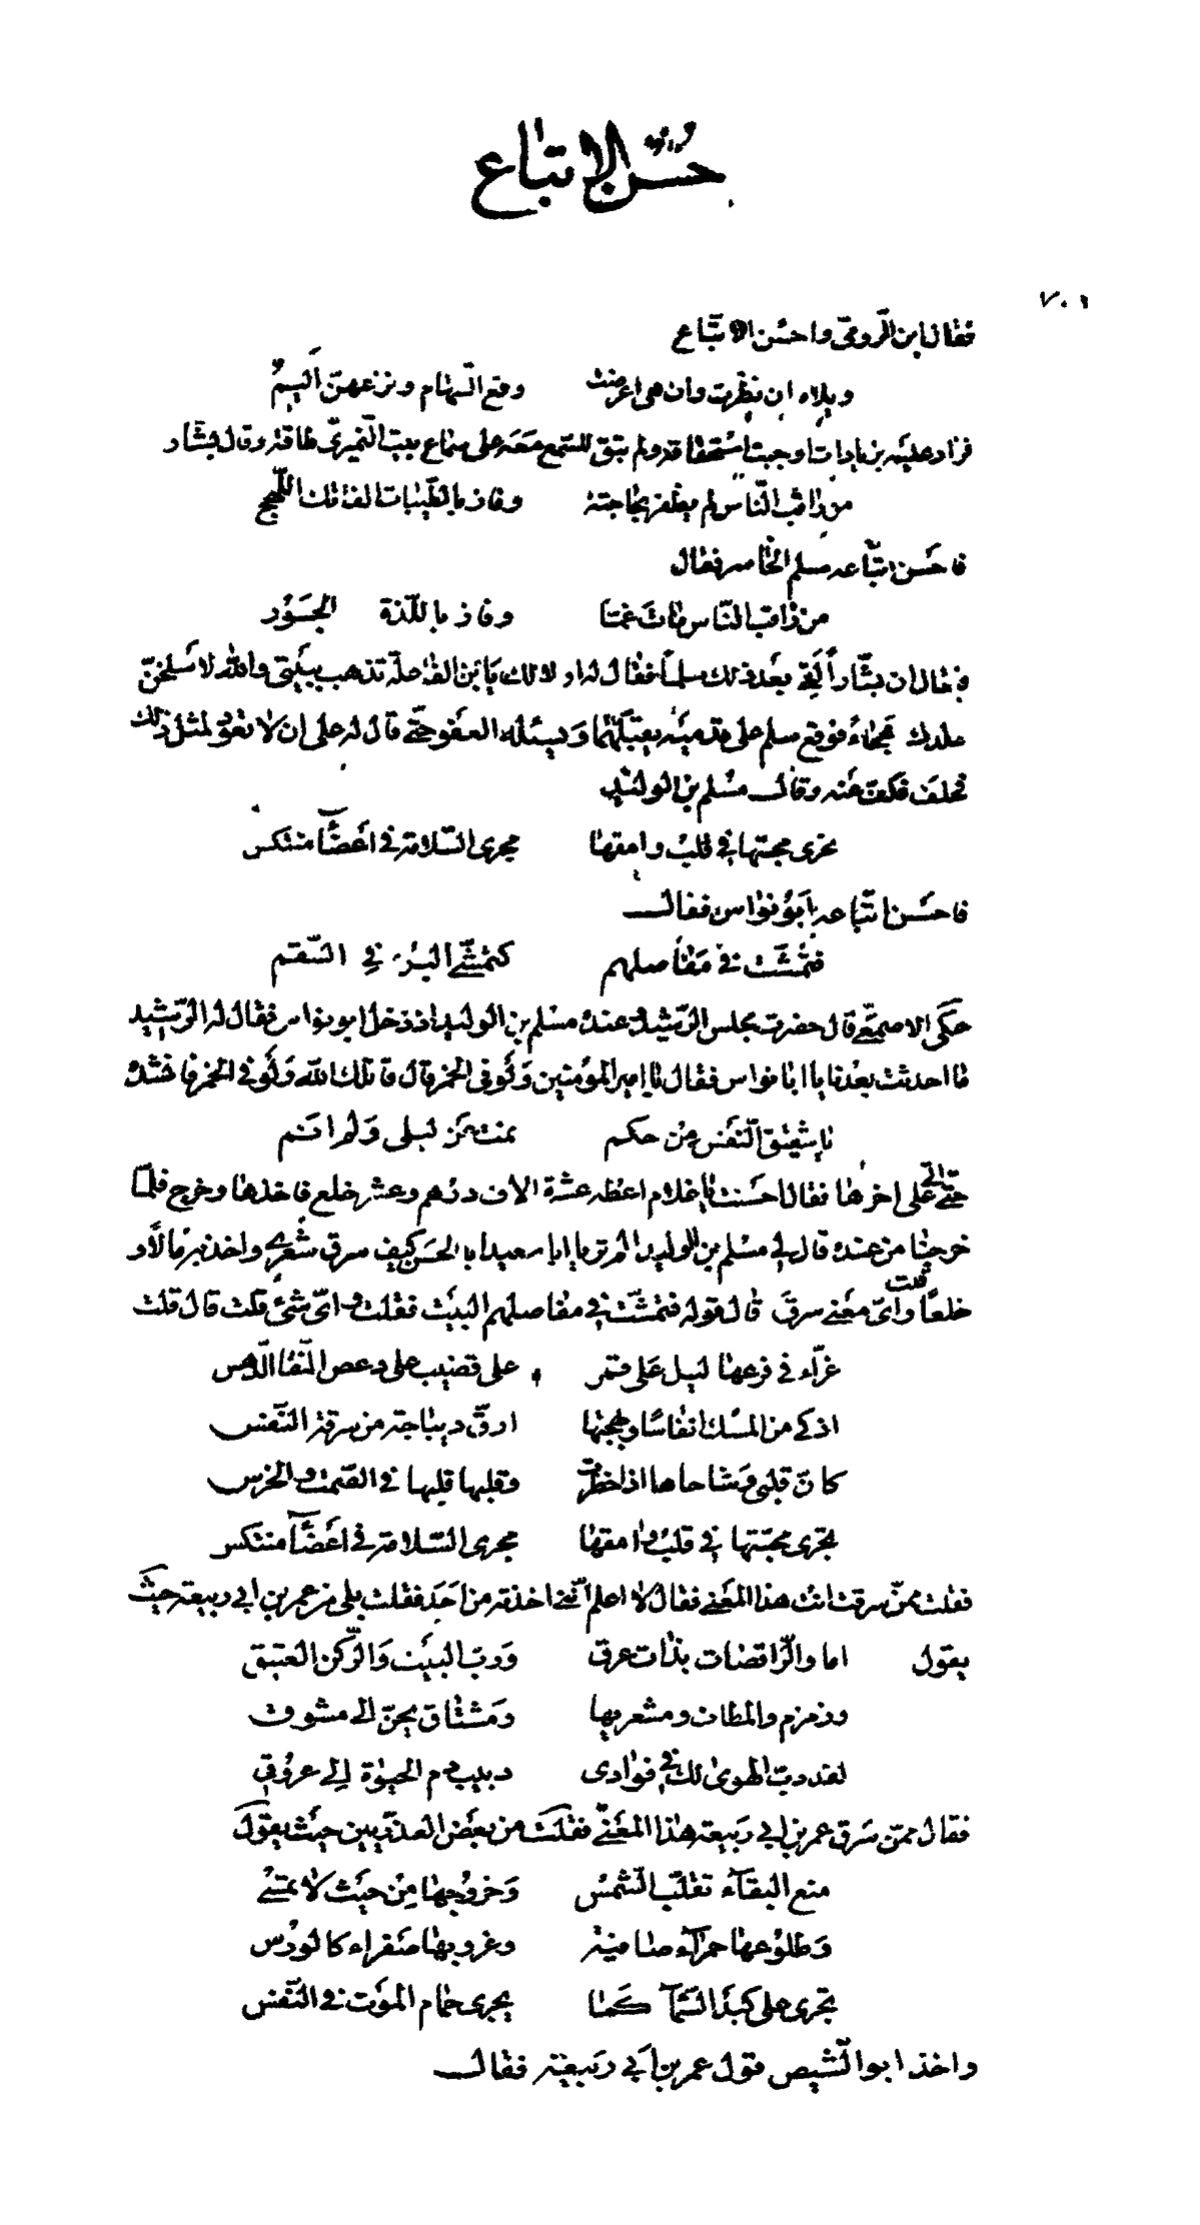 حسن الاتباع
٧٠٦
فقال ابن الرومي واحسن الاتباع
ويلاه ان نظرت وان هى اعرضت وقع السهام ونزعهن أليم
فزاد عليه بزيادات اوجبت استحقاقه ولم يبق للسمع معه على سماع بيت النميري طاقة وقال بشار
من راقب الناس لم يظفر بحاجته وفاز بالطيبات الفاتك اللهج
فاحسن اتباعه سلم الخاسر فقال
من راقب الناس مات غما وفاز باللذة الجسور
فيقال ان بشاراً لقي بعد ذلك سلما فقال له يا ابن الفاعلة تذهب ببيتي والله لاسلخن
جلدك فجاء فوقع سلم على قدميه يقبلهما ويسئله العفو حتى قال له على ان لا تعود لمثل ذلك
فحلف فكف عنه وقال مسلم بن الوليد
تجرى محبتها في قلب وامقها مجرى السلامة في اعضآ منتكس
فاحسن اتباعه ابو نواس فقال
فتمشت في مفاصلهم كتمشي البرء في السقم
حكى الاصمعي قال حضرت مجلس الرشيد وعنده مسلم بن الوليد اذ دخل ابو نواس فقال له الرشيد
ما احدثت بعدنا يا ابا نواس فقال يا امير المؤمنين ولو في الخمر قال قاتلك الله ولو في الخمر فانشده
يا شقيق النفس من حكم نمت عن ليلى ولم انم
حتى اتى على اخرها فقال احسنت يا غلام اعطه عشرة الاف درهم وعشر خلع فاخذها وخرج فلما
خرجنا من عنده قال لي مسلم بن الوليد الم تر يا ابا سعيد ابا الحسن كيف سرق شعري واخذ به مالاً و
خلعاً قلت واى معنى سرق قال قوله فتمشت في مفاصلهم البيت فقلت واى شئ قلت قال قلت
غرّاء في فرعها ليل على قمر على قضيب على دعص النقا الدهس
اذكى من المسك انفاسا وبهجتها ارق ديباجة من رقة النفس
كان قلبي وشاحاها اذا خطرت وقلبها قلبها في الصمت والخرس
تجرى محبتها في قلب وامقها مجرى السلامة في اعضآ منتكس
فقلت ممن سرقت انت هذا المعنى فقال لا اعلم انني اخذته من احد فقلت بلى من عمر بن ابي ربيعة حيث
يقول اما والراقصات بذات عرق ورب البيت والركن العتيق
وزمزم والمطاف ومشعريها ومشتاق يحن الى مشوق
لقد دب الهوى لك في فوادى دبيب دم الحيوة الى عروقي
فقال ممن سرق عمر بن ابي ربيعة هذا المعنى فقلت من بعض العذريين حيث يقول
منع البقآء تقلب الشمس وخروجها من حيث لا تمسي
وطلوعها حمرآء صافية وغروبها صفراء كالورس
تجرى على كبد السمآ كما يجرى حمام الموت في النفس
واخذ ابو الشيص قول عمر بن ابي ربيعة فقال